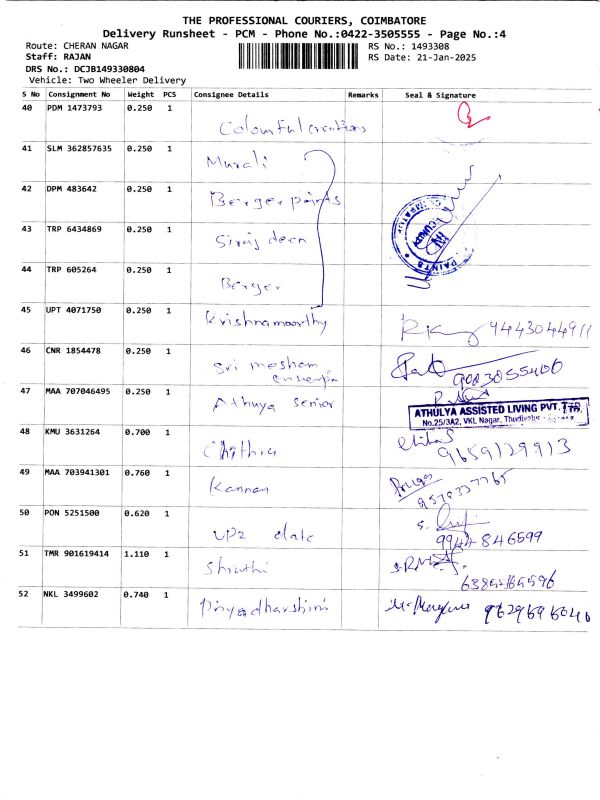 THE PROFESSIONAL COURIERS, COIMBATORE
Delivery Runsheet - PCM - Phone No.:0422-3505555 - Page No.:4
Route: CHERAN NAGAR RS No.: 1493308
Staff: RAJAN RS Date: 21-Jan-2025
DRS No.: DCJB149330804
Vehicle: Two Wheeler Delivery
S No Consignment No Weight PCS Consignee Details Remarks Seal & Signature
40 PDM 1473793 0.250 1
Colourful creations
41 SLM 362857635 0.250 1
Murali
42 DPM 483642 0.250 1
Berger paints
43 TRP 6434869 0.250 1
Siraj deen
44 TRP 605264 0.250 1
Berger
PAINTS
45 UPT 4071750 0.250 1
Krishnamoorthy 9443044911
46 CNR 1854478 0.250 1
Sri
47 MAA 707046495 0.250 1
Athuya senior
ATHULYA ASSISTED LIVING PVT. LTD.
No.25/3A2, VKL Nagar,
48 KMU 3631264 0.700 1
Chithra 9659129913
49 MAA 703941301 0.760 1
Kannan
50 PON 5251500 0.620 1
9944 846599
51 TMR 901619414 1.110 1
Shruthi
52 NKL 3499602 0.740 1
Priyadharshini